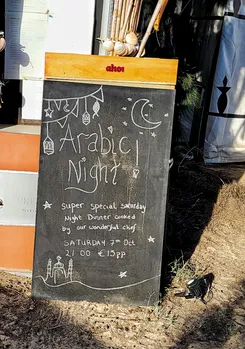 ahoi
Arabic
Night
super special saturday
Night Dinner cooked
by our wonderful chef
SATURDAY 7th Oct
21:00 €15pp